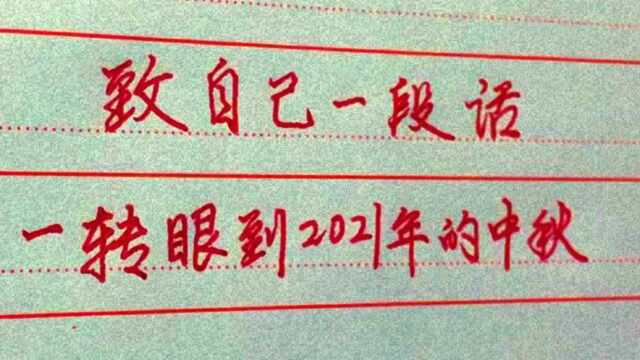 致自己一段话
一转眼到2021年的中秋